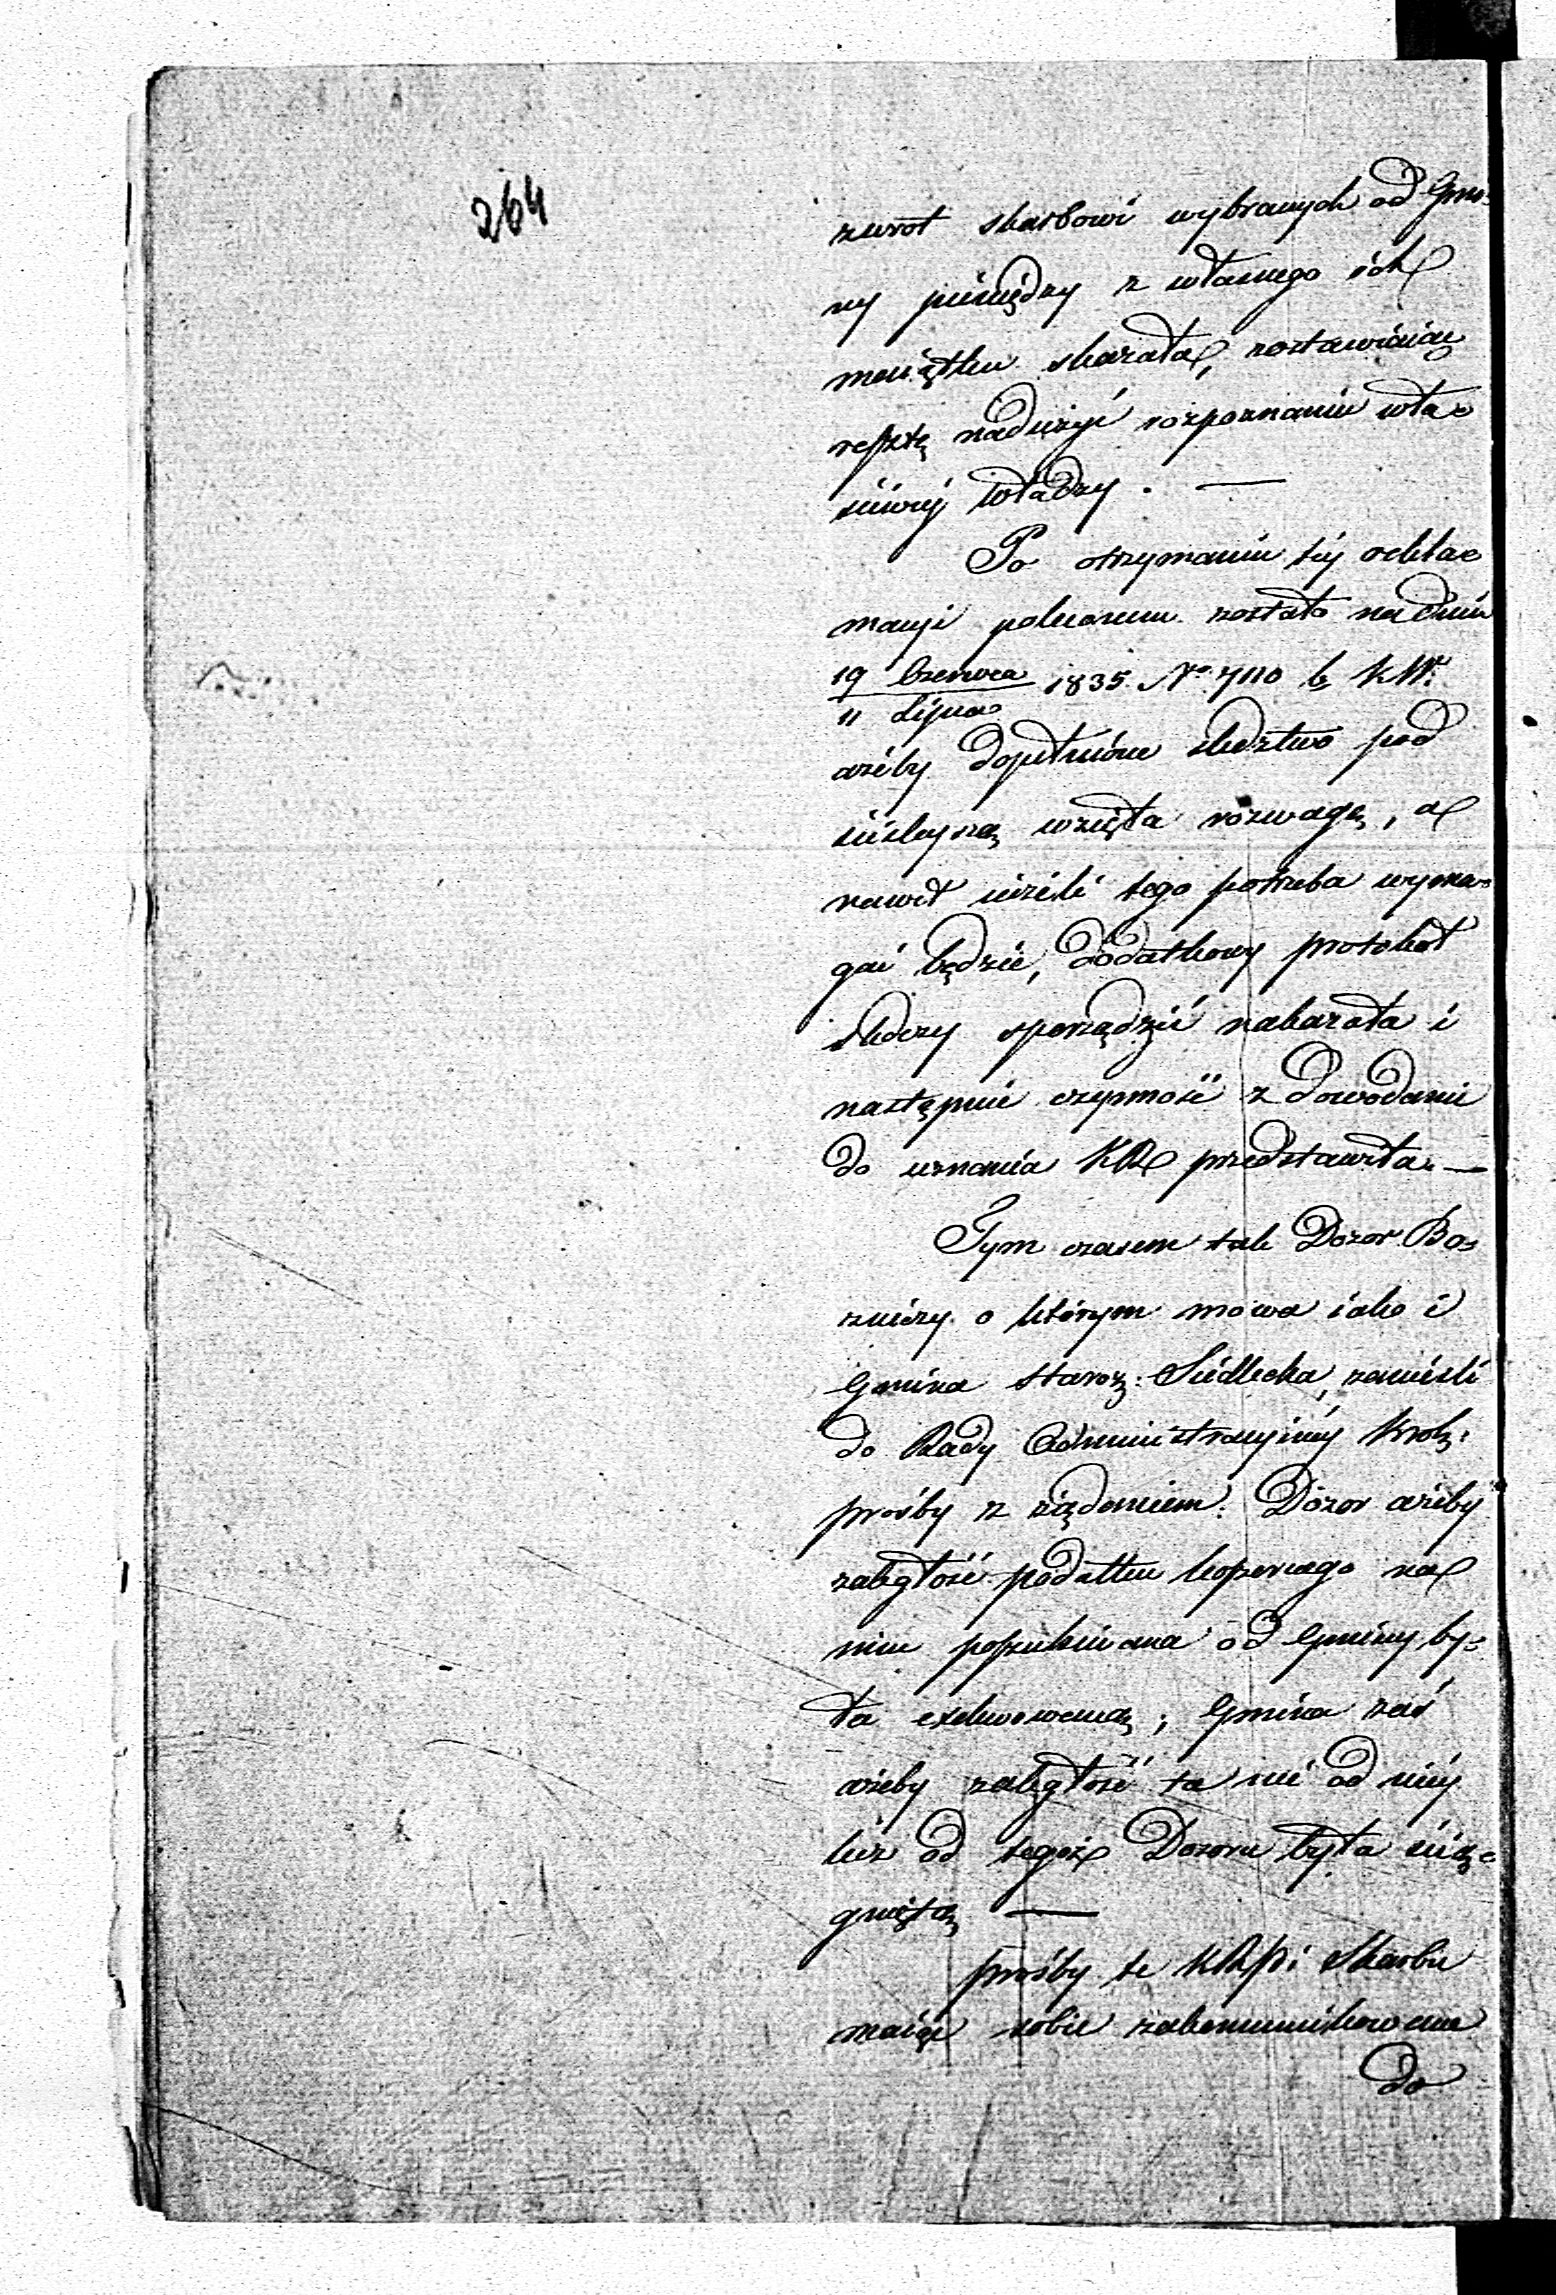 264
zwrot skarbowi wybranych od Gmi-
ny pieniędzy z własnego ich
maiątku skazała, zostawiaiąc
resztę nadużyć rozpoznaniu wła-
ściwéj władzy. —
Po otrzymaniu téj rekla-
macyi poleconem zostało na dniu
19 Czerwca / 11 Lipca 1835 No 7110 b, KW.
ażeby dopełnione śledztwo pod
ściślejszą wzięła rozwagę, a
nawet ieżeli tego potrzeba wyma-
gać będzie, dodatkowy protokół
śledczy sporządzić nakazała i
następnie czynność z dowodami
do uznania KR przedstawiła. —
Tym czasem tak Dozor Bo-
żniczy o którym mowa iako i
Gmina staroz: Siedlecka, zanieśli
do Rady Administracyinéj Krolź:
prośby z żądaniem: Dozor ażeby
zaległość podatku koszernego na
nim poszukiwana od Gminy by-
ła exekwowaną; Gmina zaś
ażeby zaległość ta nie od niéj
lecz od tegoż Dozoru była ścią-
gniętą —
Prośby te KRPi Skarbu
maiąc sobie zakomunikowane
do